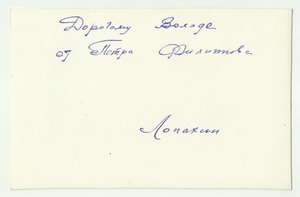 Дорогому Володе
от Петра Филиппова
Лопахин